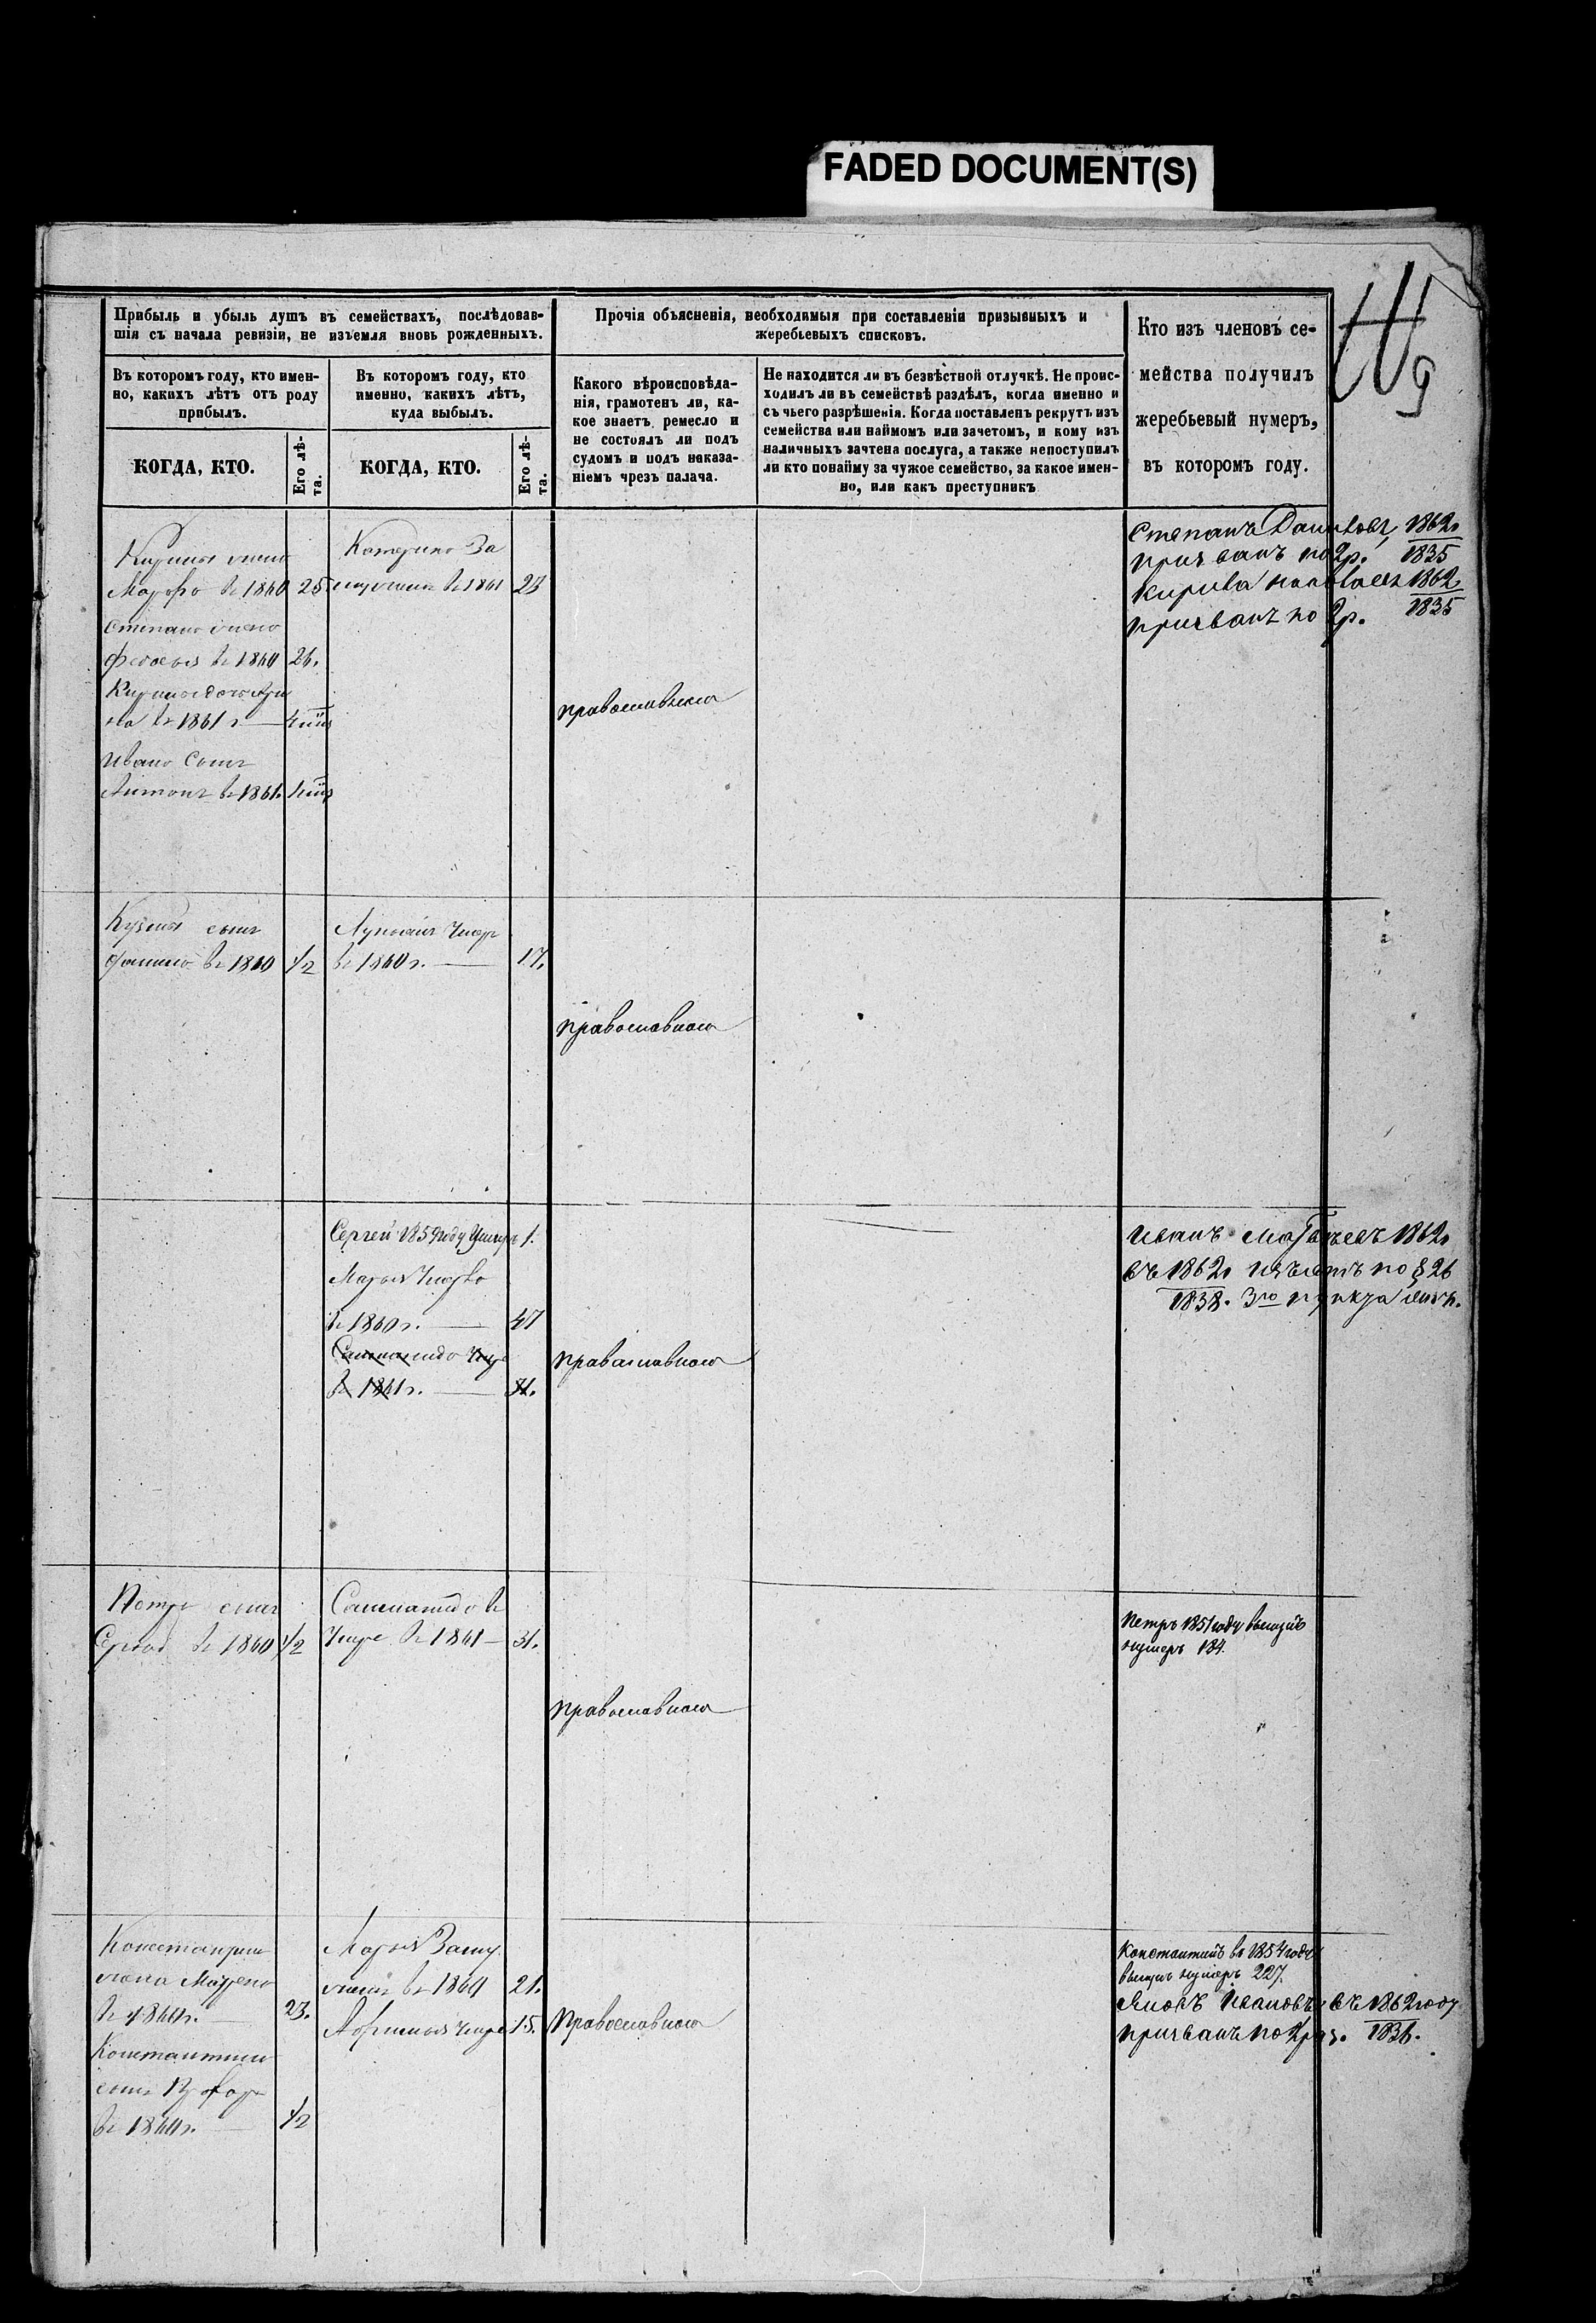 FADED DOCUMENT(S)
9
Прибыль и убыль душъ въ семействахъ, послѣдовав-
шія съ начала ревизіи, не изъемля вновь рожденныхъ.
Въ которомъ году, кто имен-
но, какихъ лѣтъ отъ роду
прибылъ.
КОГДА, КТО.
Его лѣ-
та.
Въ которомъ году, кто
именно, какихъ лѣтъ,
куда выбылъ.
КОГДА, КТО.
Его лѣ-
та.
Прочія объясненія, необходимыя при составленіи призывныхъ и
жеребьевыхъ списковъ.
Какого вѣроисповѣда-
нія, грамотенъ ли, ка-
кое знаетъ ремесло и
не состоялъ ли подъ
судомъ и подъ наказа-
ніемъ чрезъ палача.
Не находится ли въ безвѣстной отлучкѣ. Не проис-
ходилъ ли въ семействѣ раздѣлъ, когда именно и
съ чьего разрѣшенія. Когда поставленъ рекрутъ изъ
семейства или наймомъ или зачетомъ, и кому изъ
наличныхъ зачтена послуга, а также непоступилъ
ли кто понайму за чужое семейство, за какое имен-
но, или какъ преступникъ
Кто изъ членовъ се-
мейства получилъ
жеребьевый нумеръ,
въ которомъ году.
Кирилы жена
Марфа въ 1860 25.
Степана жена
въ 1860 26.
Кирилы дочь Ари
на въ 1861 г
Ивана Сынъ
Антонъ въ 1861.
Катерина За
мужъ въ 1861 23
православнаго
Степанъ Даниловъ, 1862
призванъ по 2р. 1835
Кирила 1862
призванъ по 2р. 1835
Кузмы сынъ
въ 1860 1/2
Лукьянъ Умеръ
въ 1860 г. 17.
православнаго
Сергей 1859 году Умеръ 1.
Марья Умерла
въ 1860 г. 47
Умре
въ 1861 г. 31.
православнаго
Иванъ Матвѣевъ 1862
въ 1862 изъятъ по § 26
1838. 3го пункта
Петра сынъ
Сергей въ 1860 1/2
Умре въ 1861 31.
православнаго
Петръ 1851 году вынулъ
нумеръ 184.
Константина
жена Матрена
въ 1860 г. 23.
Константина
сынъ
въ 1860 г. 1/2
Марья Заму
жемъ въ 1860 21.
Умре 15.
Православнаго
Константинъ въ 1854 году
вынулъ нумеръ 227.
Яковъ Ивановъ въ 1862 году
призванъ по 2 раз. 1836.